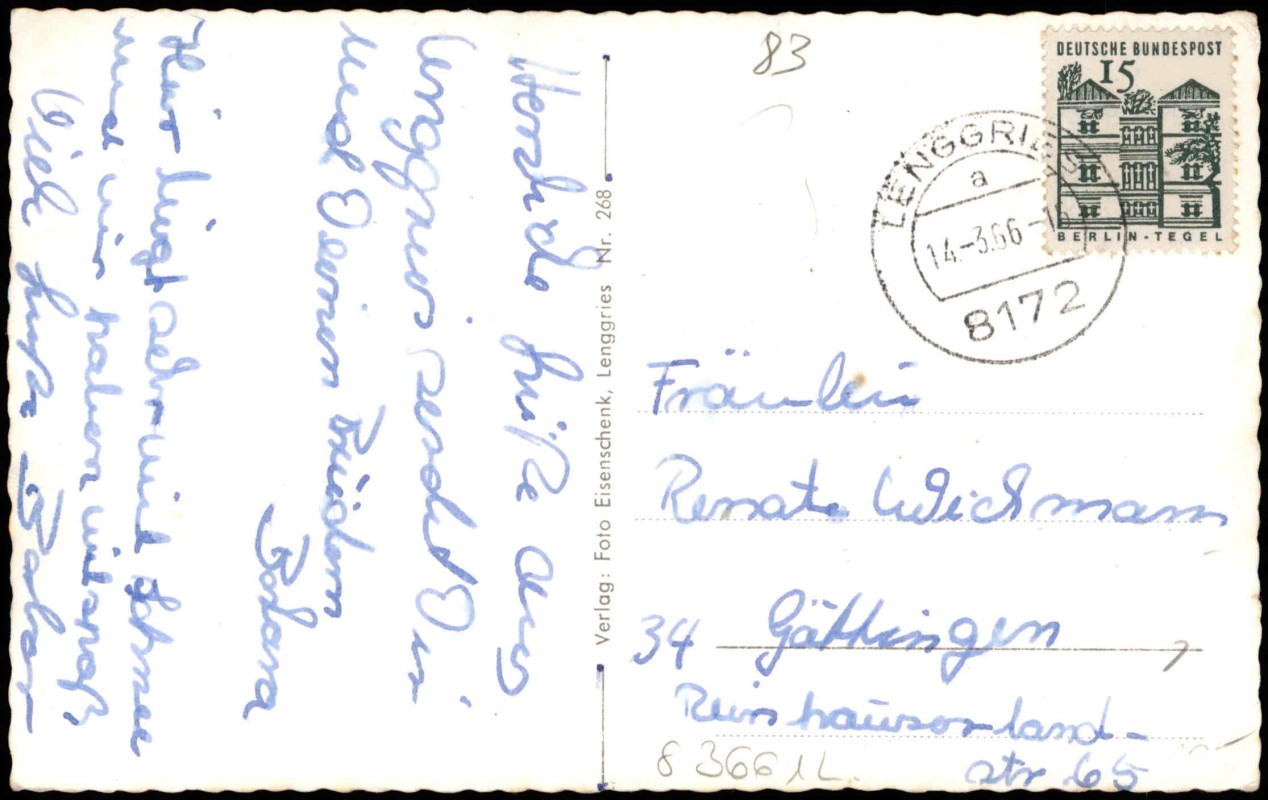 Herzliche Grüße aus
Lenggries sendet Dir
und Deinen Brüdern
Hier liegt sehr viel Schnee
und wir haben viel Spaß.
Viele Grüße
Verlag: Foto Eisenschenk, Lenggries Nr. 268
83
DEUTSCHE BUNDESPOST
15
BERLIN-TEGEL
LENGGRIES
a
14.-3.66-
8172
Fräulein
Renate Wichmann
34 Göttingen
Reinhäuserland-
str. 65
83661L